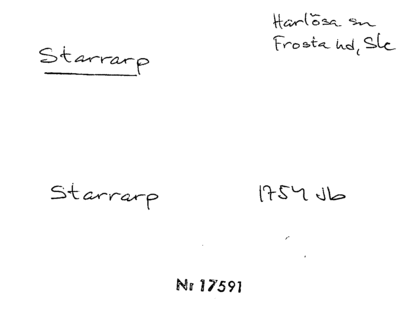 Harlösa sn
Frosta hd, Sk
Starrarp
Starrarp 1754 Jb
Nr 17591